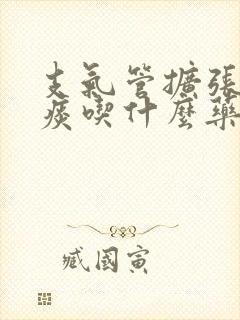 支氣管擴張
痰喫什麼藥
臧國寅